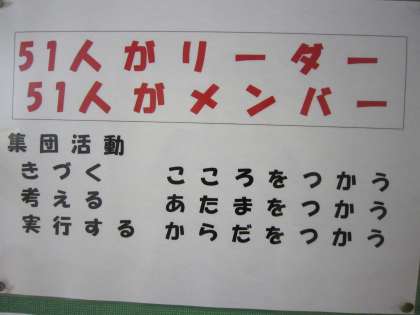 51人がリーダー
51人がメンバー
集団活動
きづく　こころをつかう
考える　あたまをつかう
実行する　からだをつかう